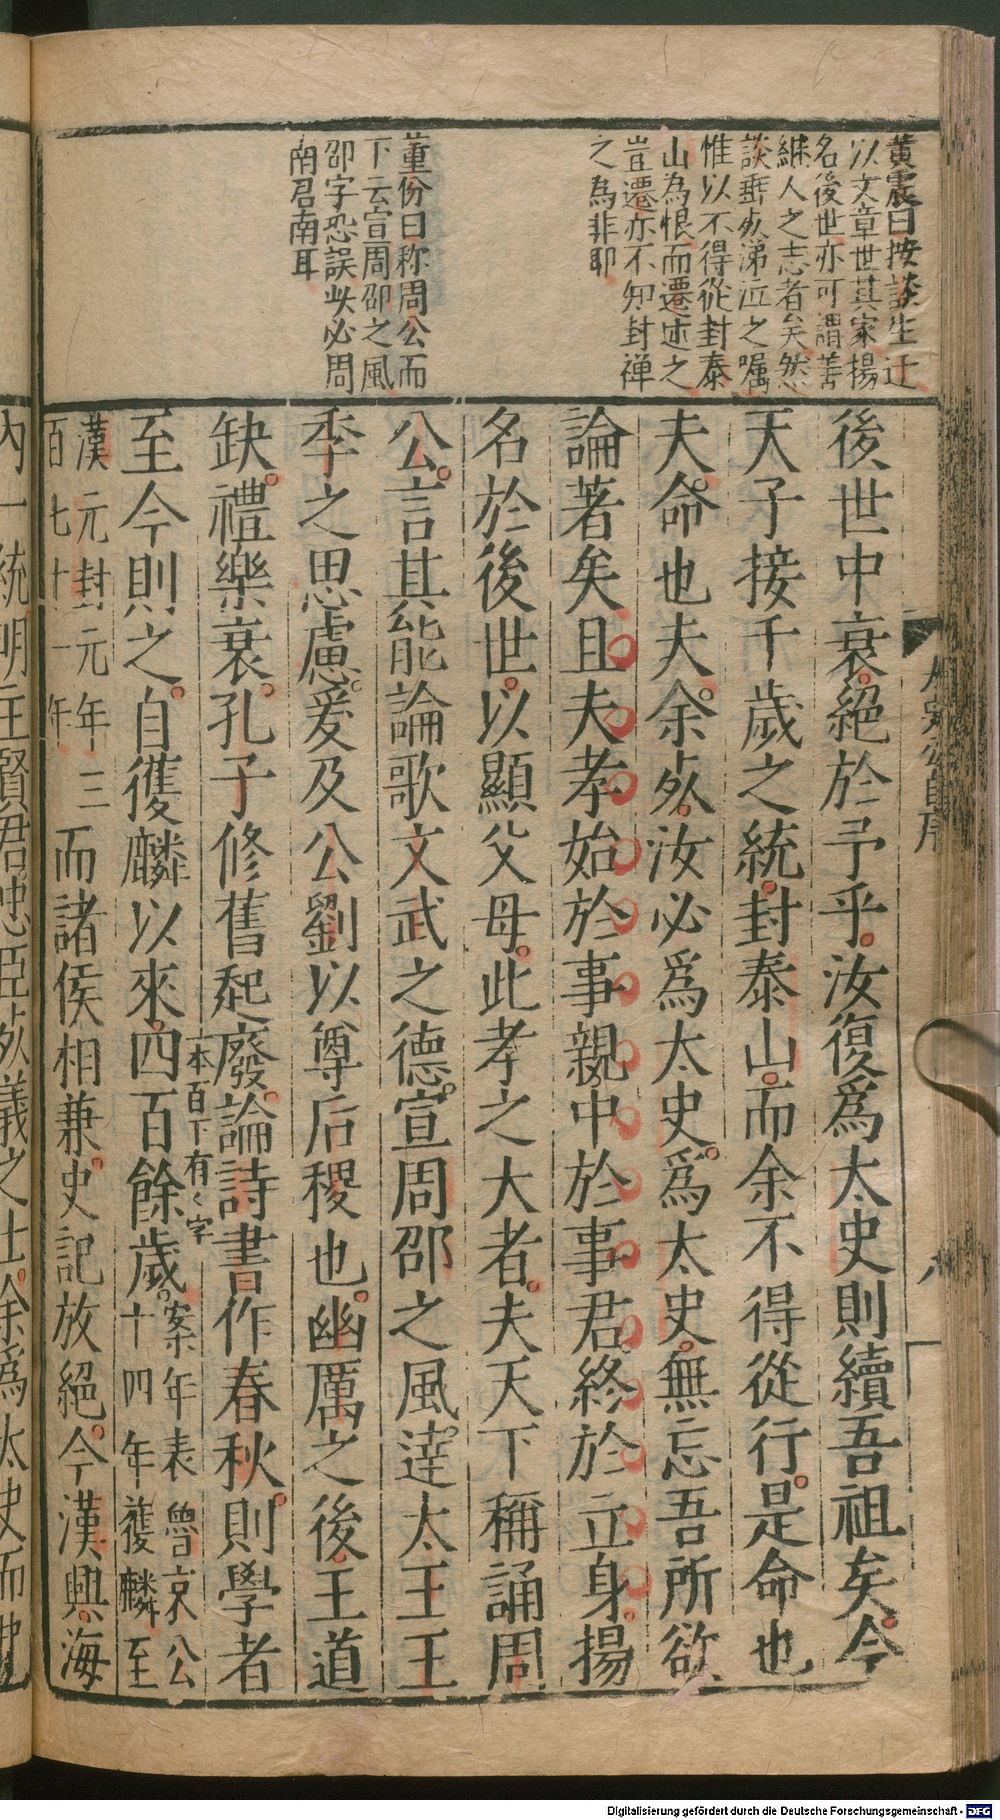 黄震曰按談生迁
以文章世其家揚
名後世亦可謂善
継人之志者矣然
談垂歿涕泣之嘱
惟以不得從封泰
山為恨而遷述之
豈遷亦不知封禅
之為非耶
董份曰称周公而
下云宣周邵之風
邵字恐誤此必周
南召南耳
後世中衰絕於予乎汝復爲太史則續吾祖矣今
天子接千歲之統封泰山而余不得從行是命也
夫命也夫余歿汝必爲太史爲太史無忘吾所欲
論著矣且夫孝始於事親中於事君終於立身揚
名於後世以顯父母此孝之大者夫天下稱誦周
公言其能論歌文武之德宣周邵之風達太王王
季之思慮爰及公劉以尊后稷也幽厲之後王道
缺禮樂衰孔子修舊起廢論詩書作春秋則學者
一本百下有々字
至今則之自獲麟以來四百餘歲案年表魯哀公
十四年獲麟至
漢元封元年三
百七十一年而諸侯相兼史記放絕今漢興海
內一統明主賢君忠臣死義之士余爲太史而弗
太史公自序
八
Digitalisierung gefördert durch die Deutsche Forschungsgemeinschaft - DFG